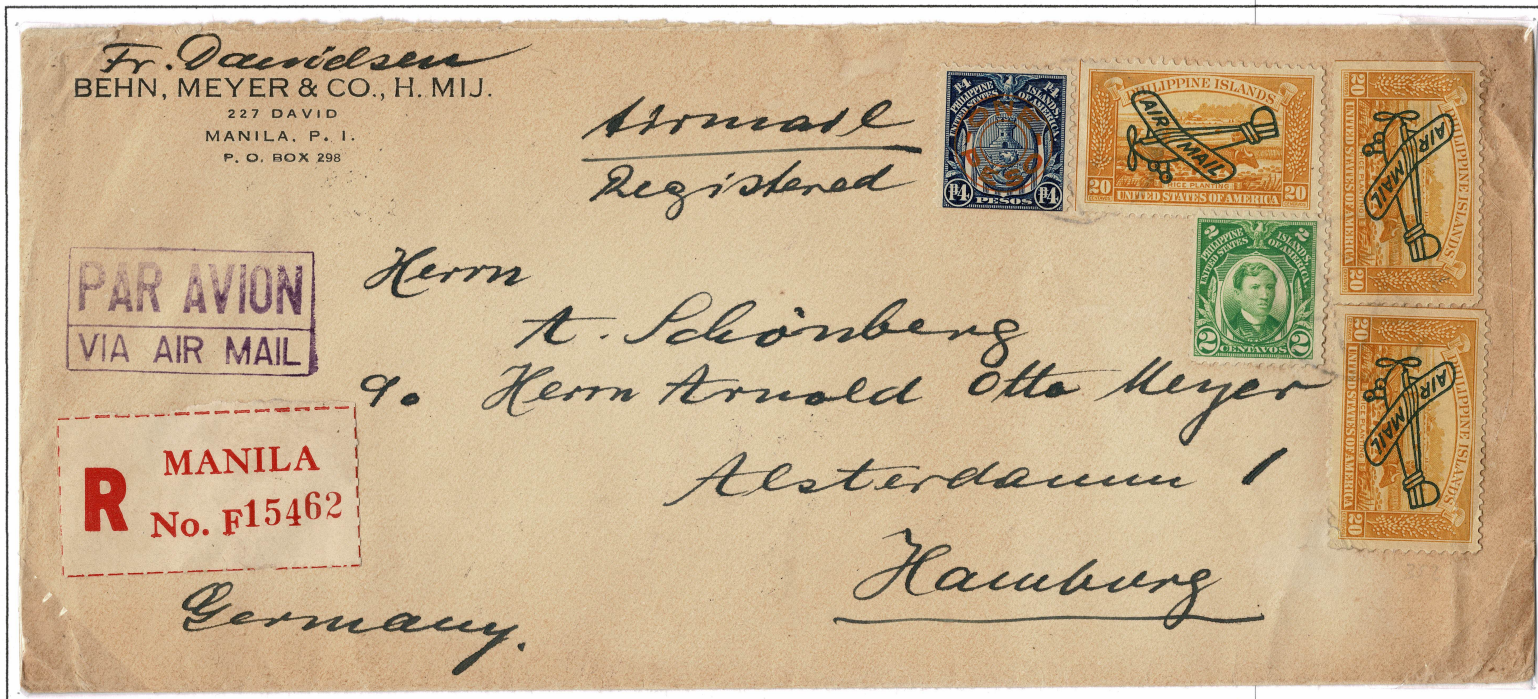 Fr. Davidsen
BEHN, MEYER & CO., H. MIJ.
227 DAVID
MANILA, P. I.
P. O. BOX 298
Airmail
Registered
₱4 ₱4
PHILIPPINE ISLANDS
UNITED STATES OF AMERICA
₱4 PESOS ₱4
PHILIPPINE ISLANDS
AIR MAIL
RICE PLANTING
20 20
UNITED STATES OF AMERICA
20
PHILIPPINE ISLANDS
AIR MAIL
UNITED STATES OF AMERICA
20
2 2
PHILIPPINE ISLANDS
UNITED STATES OF AMERICA
2 CENTAVOS 2
20
PHILIPPINE ISLANDS
AIR MAIL
UNITED STATES OF AMERICA
20
PAR AVION
VIA AIR MAIL
Herrn
A. Schönberg
c/o Herrn Arnold Otto Meyer
Alsterdamm 1
Hamburg
R MANILA
No. F15462
Germany.